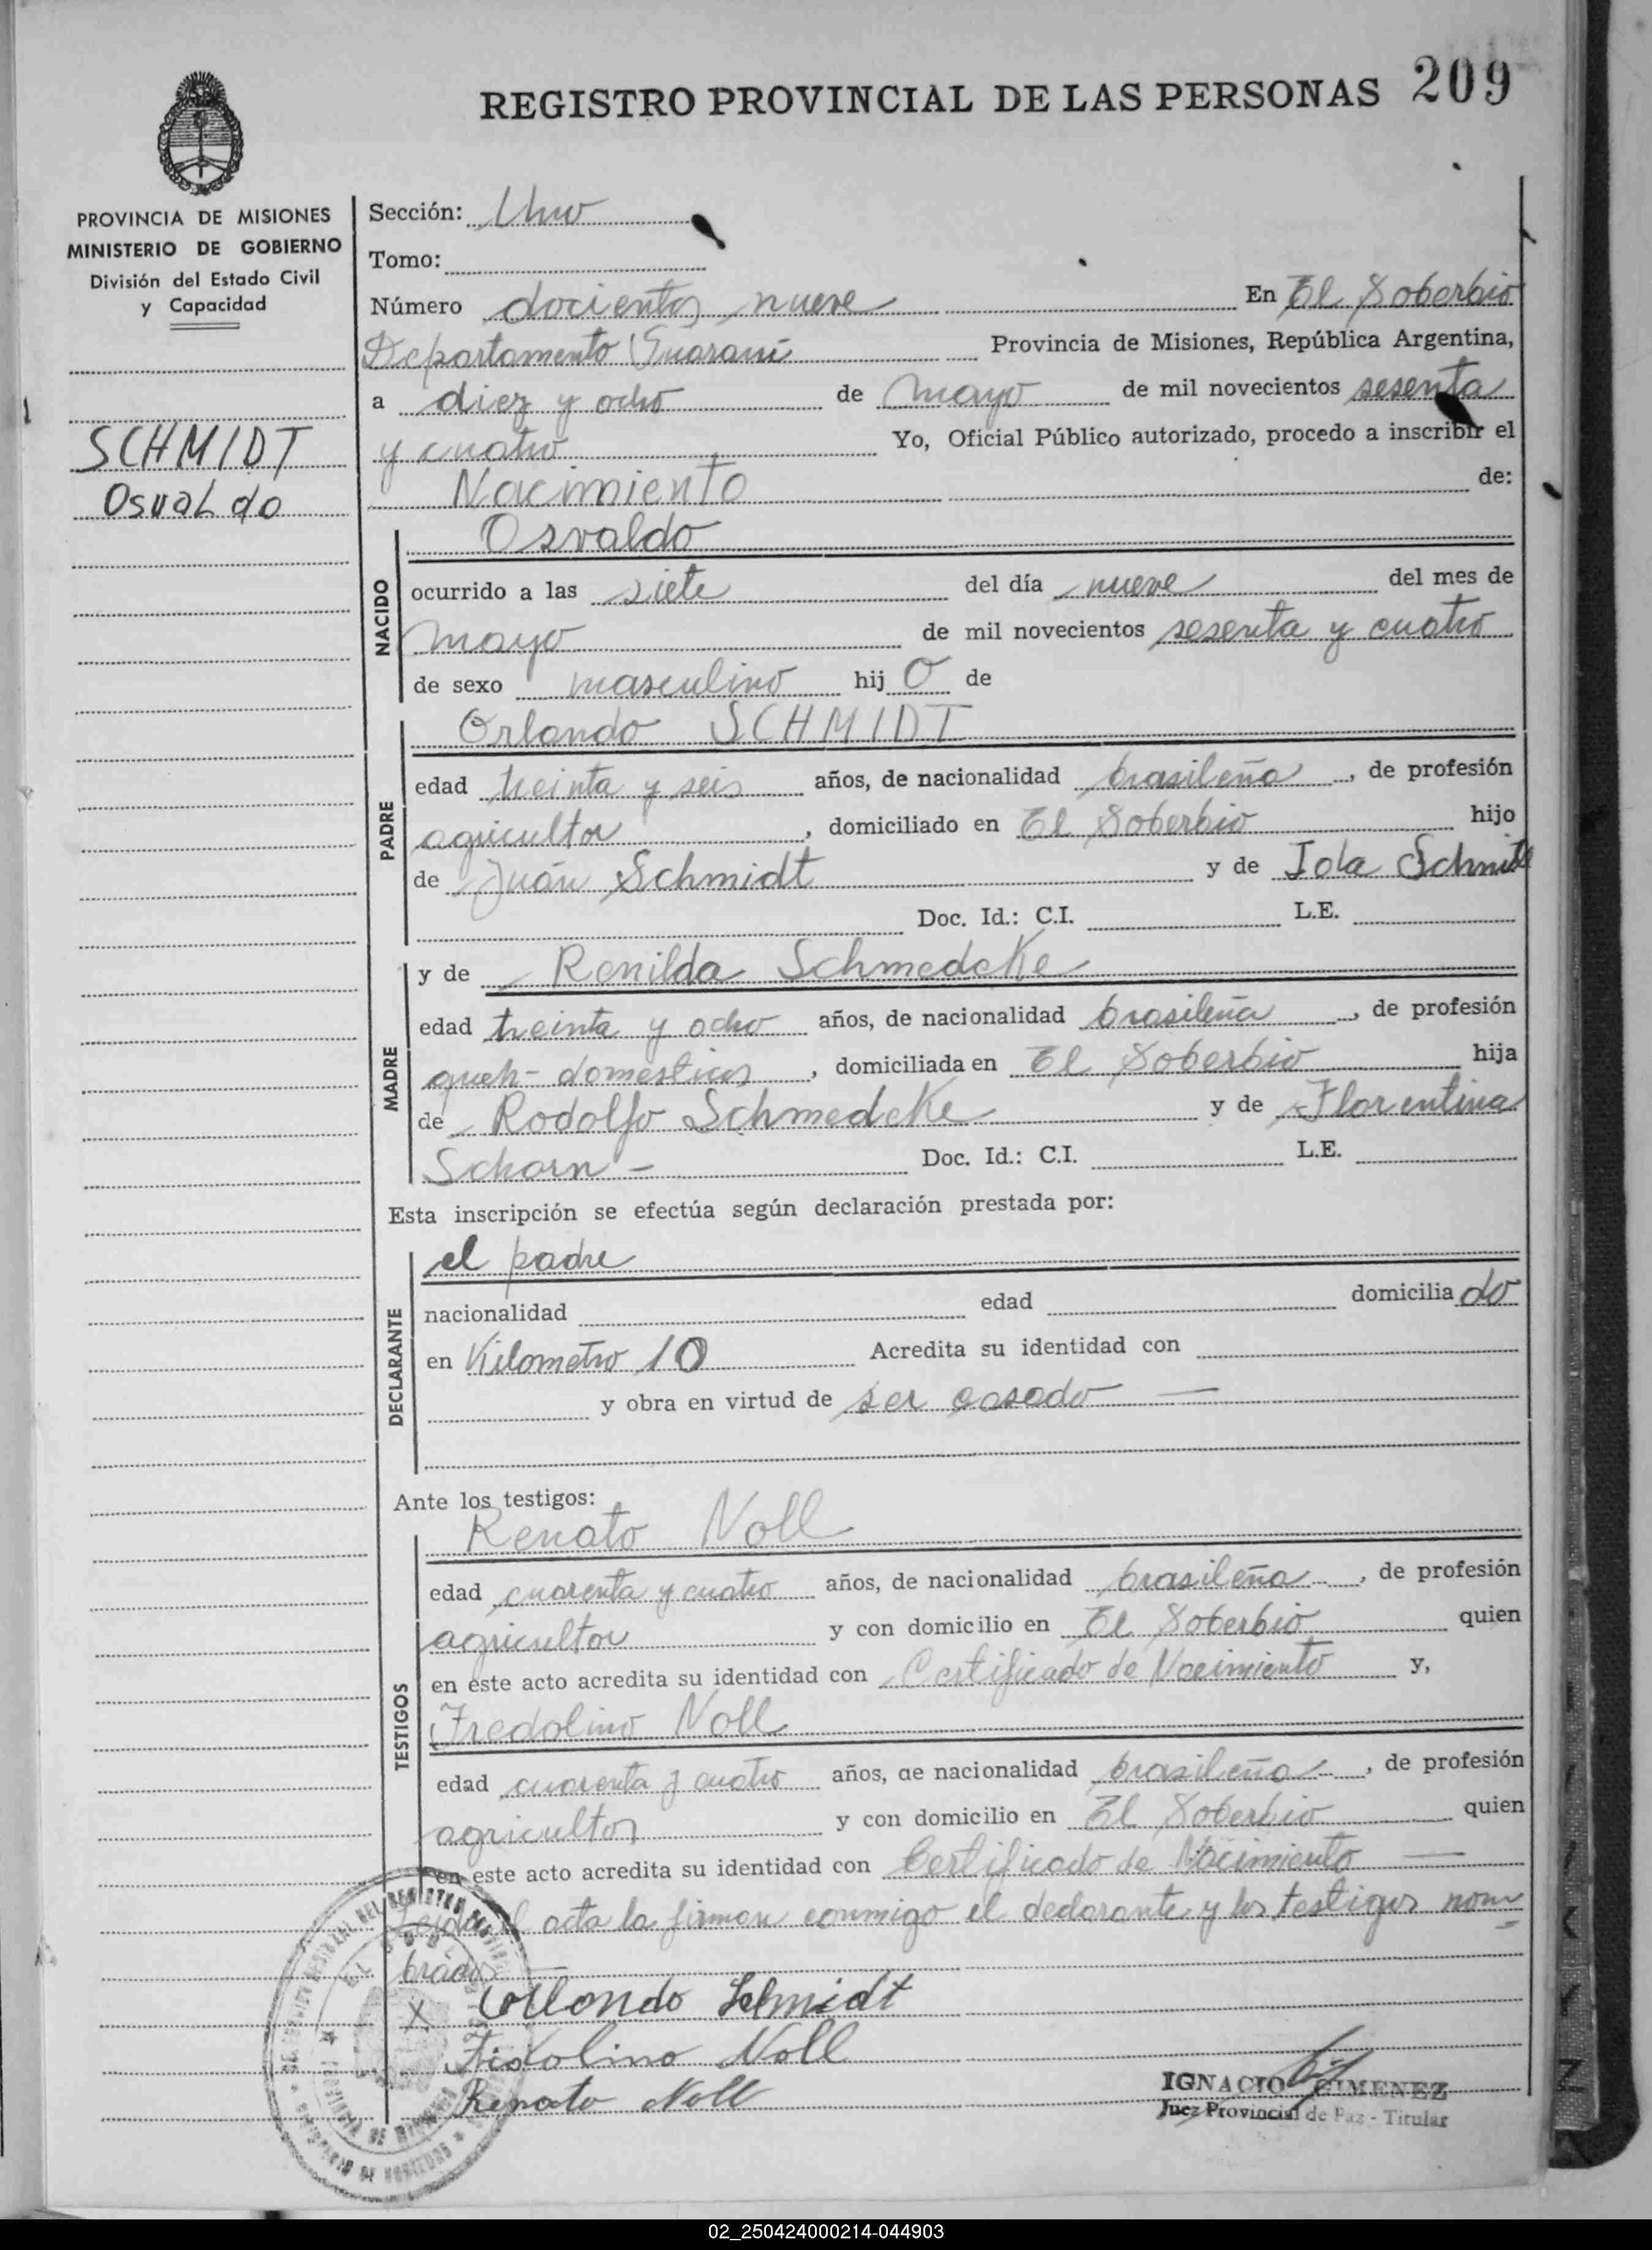 REGISTRO PROVINCIAL DE LAS PERSONAS 209
PROVINCIA DE MISIONES
MINISTERIO DE GOBIERNO
División del Estado Civil
y Capacidad
SCHMIDT
Osvaldo
Sección: Uno
Tomo:
Número docientos nueve En El Soberbio
Departamento Guaraní Provincia de Misiones, República Argentina,
a diez y ocho de mayo de mil novecientos sesenta
y cuatro Yo, Oficial Público autorizado, procedo a inscribir el
Nacimiento de:
NACIDO
Osvaldo
ocurrido a las siete del día nueve del mes de
mayo de mil novecientos sesenta y cuatro
de sexo masculino hij o de
PADRE
Orlando SCHMIDT
edad treinta y seis años, de nacionalidad brasileña, de profesión
agricultor, domiciliado en El Soberbio hijo
de Juán Schmidt y de Ida
Doc. Id.: C.I. L.E.
MADRE
y de Renilda Schmedeke
edad treinta y ocho años, de nacionalidad brasileña, de profesión
queh- domesticos, domiciliada en El Soberbio hija
de Rodolfo Schmedeke y de Florentina
Schorn - Doc. Id.: C.I. L.E.
Esta inscripción se efectúa según declaración prestada por:
DECLARANTE
el padre
nacionalidad edad domicilia do
en Kilometro 10 Acredita su identidad con
y obra en virtud de ser casado —
Ante los testigos:
TESTIGOS
Renato Noll
edad cuarenta y cuatro años, de nacionalidad brasileña, de profesión
agricultor y con domicilio en El Soberbio quien
en este acto acredita su identidad con Certificado de Nacimiento y,
Fredolino Noll
edad cuarenta y cuatro años, de nacionalidad brasileña, de profesión
agricultor y con domicilio en El Soberbio quien
en este acto acredita su identidad con Certificado de Nacimiento —
Leida el acta la firman conmigo el declarante y los testigos nom
brados —
X Orlando Schmidt
Fridolino Noll
Renato Noll
IGNACIO GIMENEZ
Juez Provincial de Paz - Titular
02_250424000214-044903